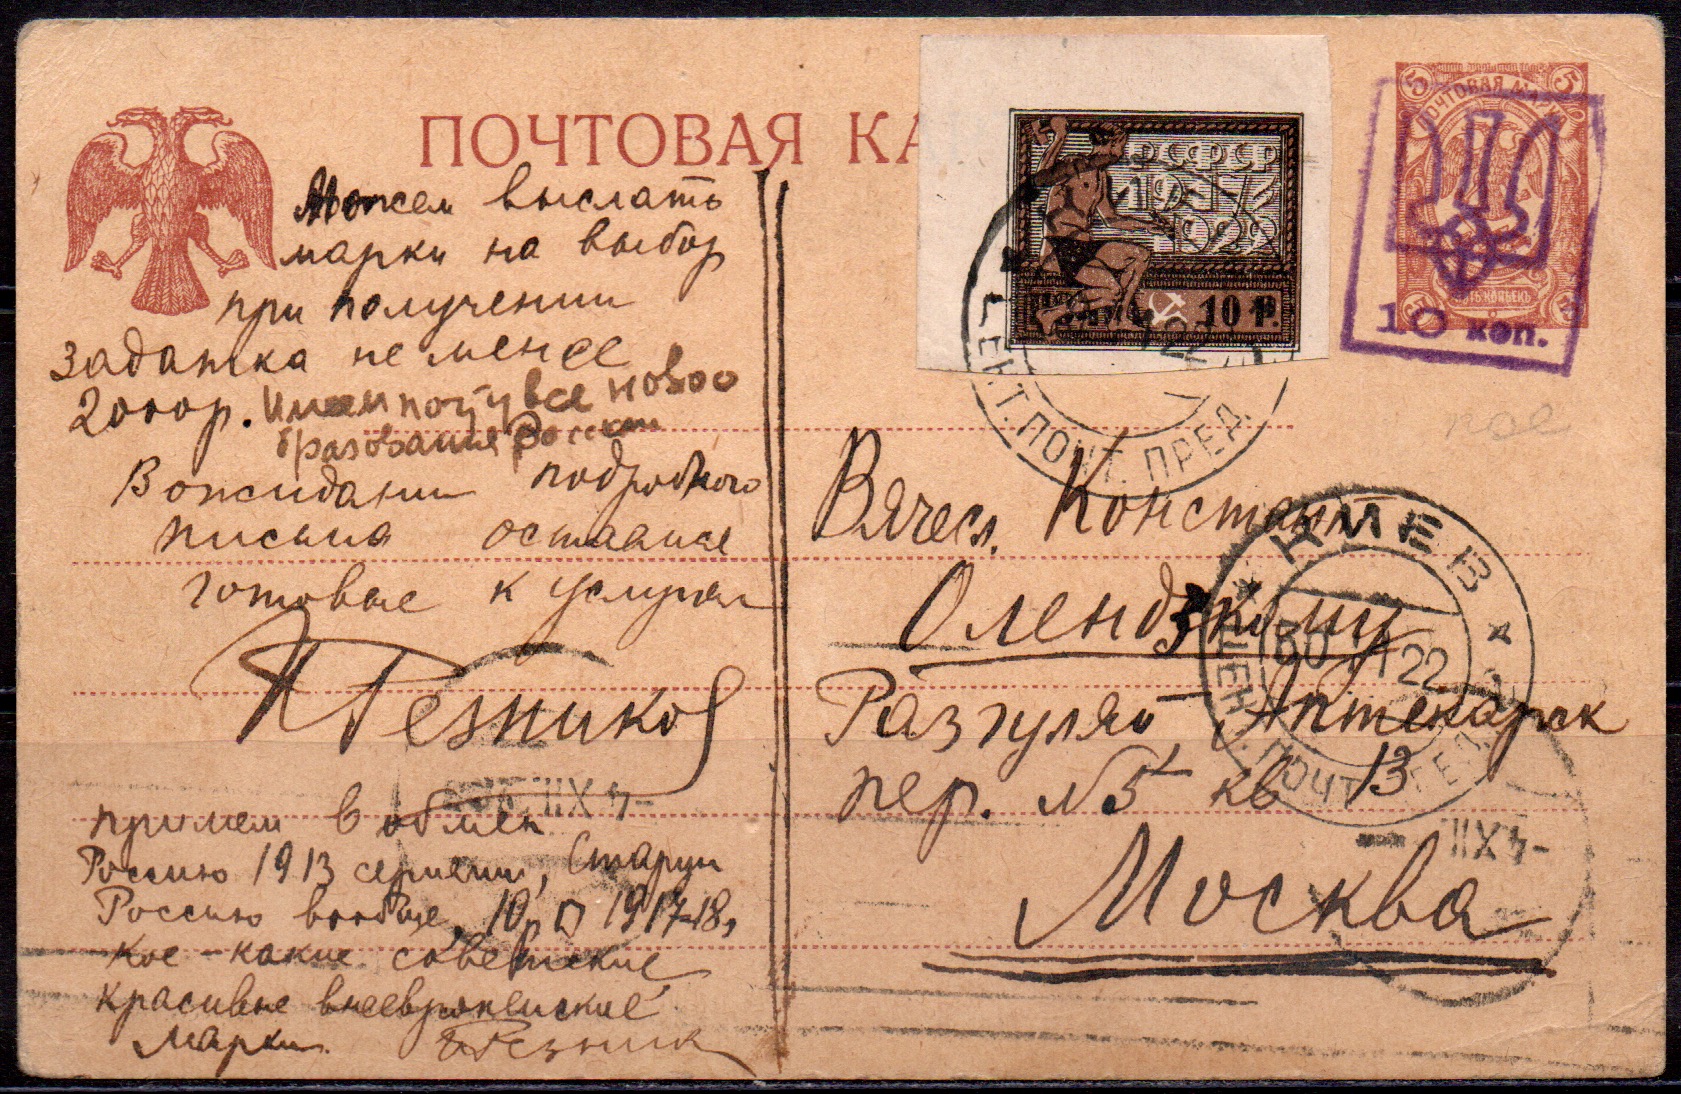 ПОЧТОВАЯ КА
Можем выслать
марки на выбор
при получении
задатка не менее
2000р. Имеем почту все новое
бразования России
В ожидании подробного
письма остаемся
готовые к услугам
Резников
примем в обмен
Россию 1913 серии, Старую
Россию вообще, 10р. 1917-18,
кое-какие советские,
красивые внеевропейские
марки. Резник
РСФСР
1917
1922
10 Р.
ЦЕНТ. ПОЧТ. ПРЕД.
ПОЧТОВАЯ МАРКА
5 5
ПЯТЬ КОПѢЕКЪ
10 коп.
Вячесл. Константин
Олендзкому
Разгуляй Аптекарск
пер. №5 кв 13
Москва
КИЕВ
30 11 22
ЦЕН. ПОЧТ